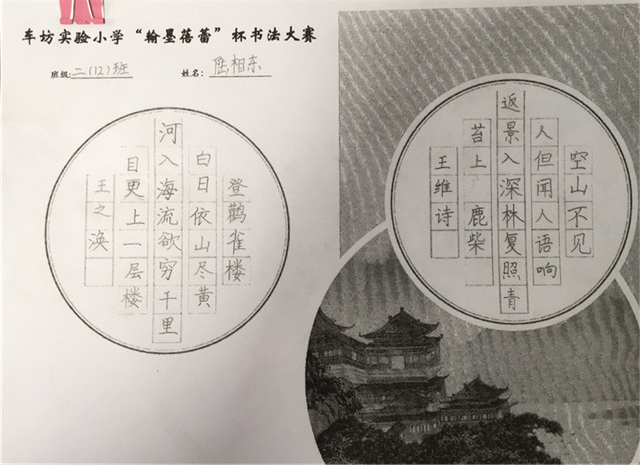 车坊实验小学“翰墨蓓蕾”杯书法大赛
班级:二(12)班 姓名:陆相东
登鹳雀楼
白日依山尽黄
河入海流欲穷千里
目更上一层楼
王之涣
空山不见
人但闻人语响
返景入深林复照青
苔上 鹿柴
王维诗